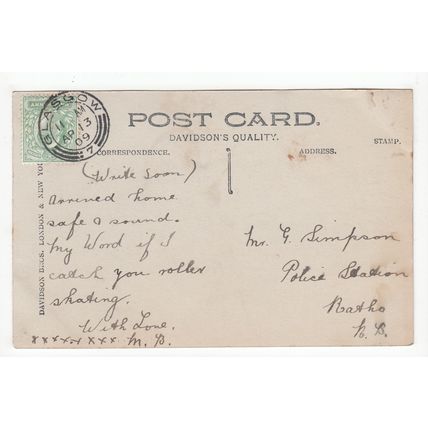 GLASGOW
11 AM
AP 13
09
7
POST CARD.
DAVIDSON'S QUALITY.
CORRESPONDENCE.
ADDRESS.
STAMP.
DAVIDSON BROS. LONDON & NEW YO
(Write Soon)
Arrived home
safe & sound.
My Word if I
catch you roller
skating.
With Love.
xxxxxxxx M. B.
Mr. G. Simpson
Police Station
Ratho
N. B.